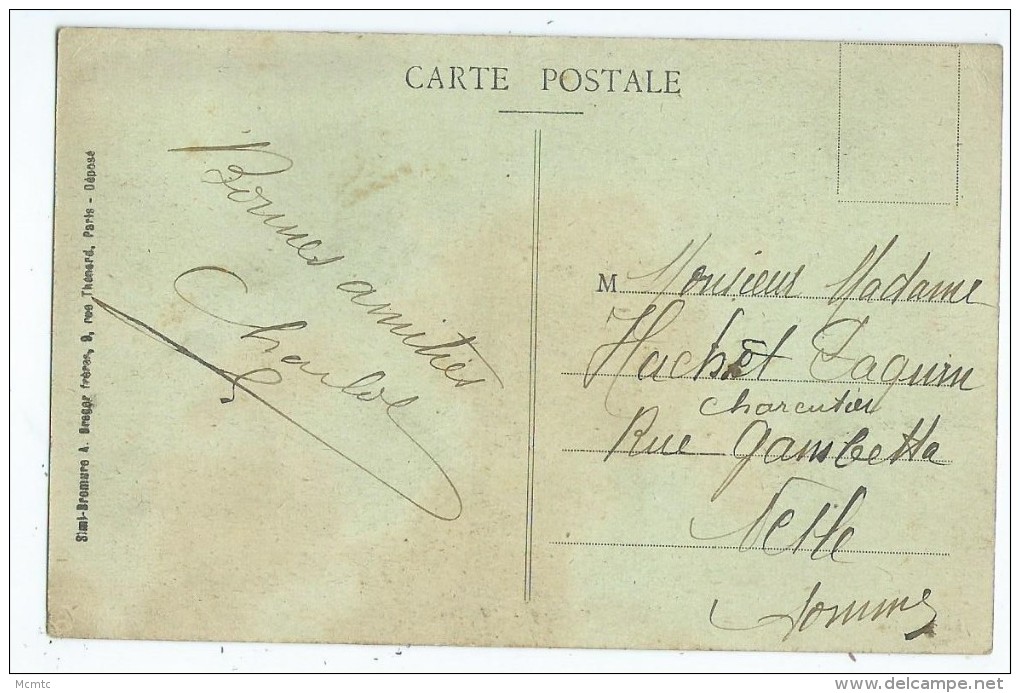 CARTE POSTALE
Bonnes amitiés
Charlot
M Monsieur Madame
Hachet
charcutier
Rue Gambetta
Nesle
Somme
Simi-Bromure A. Breger frères, 9, rue Thénard, Paris - Déposé
Mcmtc
delcampe.net